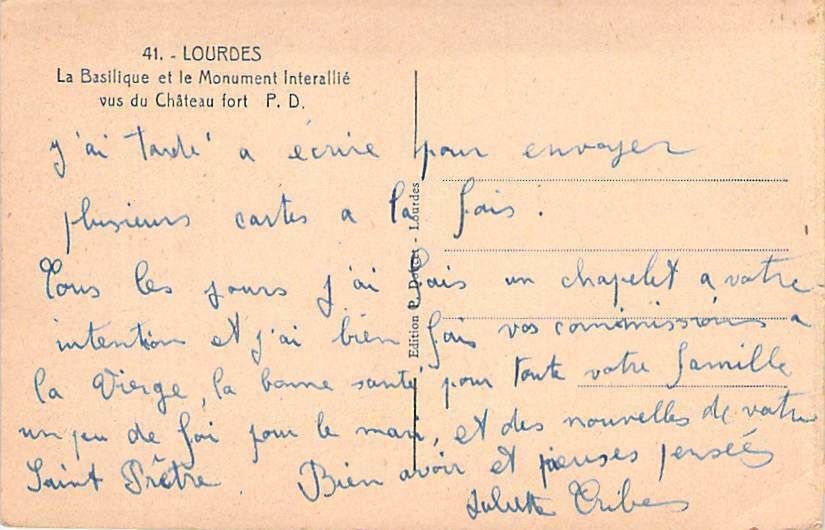 41. - LOURDES
La Basilique et le Monument Interallié
vus du Château fort P. D.
Edition P. - Lourdes
J'ai tardé a écrire pour envoyer
plusieurs cartes a la fois.
Tous les jours j'ai fais un chapelet a votre
intention et j'ai bien fais vos commissions a
la Vierge, la bonne santé pour toute votre famille
un peu de foi pour le mari, et des nouvelles de votre
Saint Prêtre. Bien avoir et pieuses pensées
Juliette